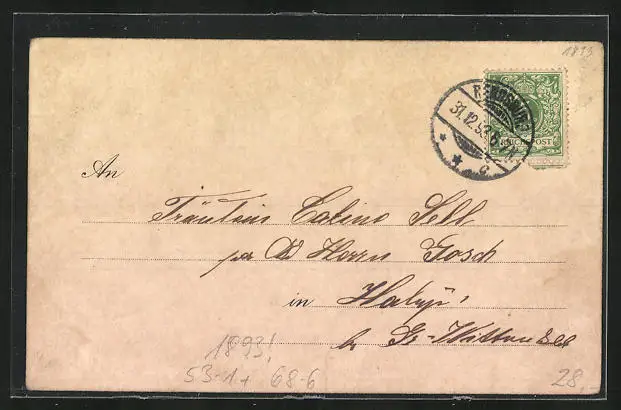 1893
RENDSBURG
31.12.93
REICHSPOST
c
An
Fräulein Catino Sell
pr Ad Herrn Gosch
in Haby
b. Gr.-Wittensee
1893!
53-1+ 68-6
28,-